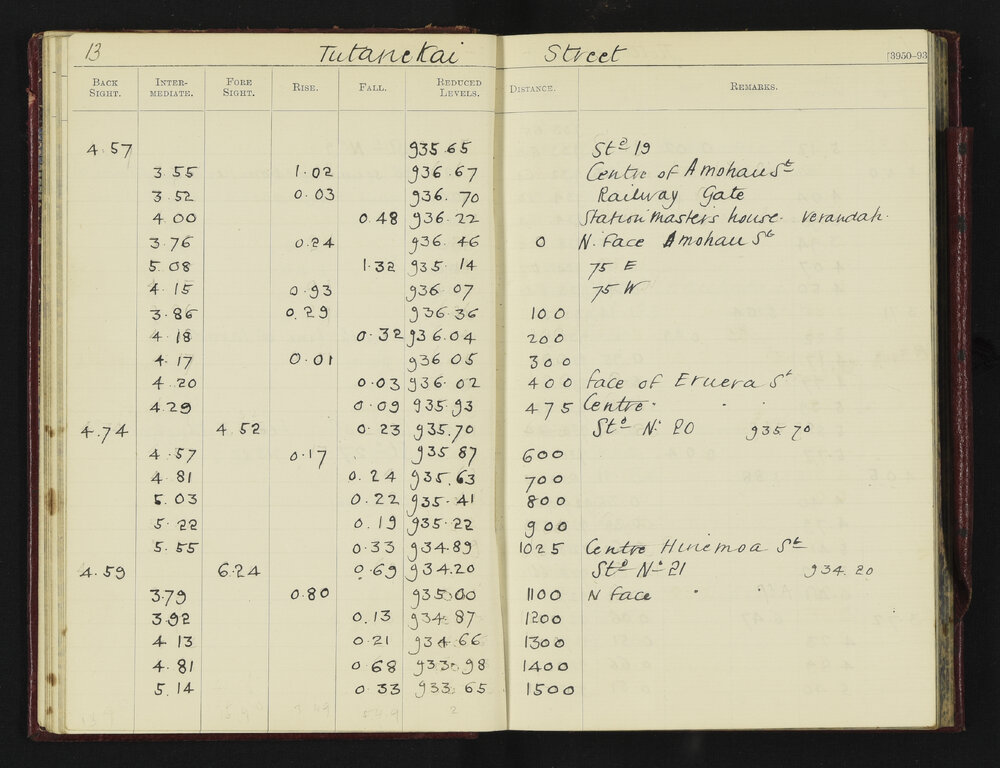 13 Tutanekai Street [3950–93
BACK SIGHT. INTER-MEDIATE. FORE SIGHT. RISE. FALL. REDUCED LEVELS. DISTANCE. REMARKS.
4.57 935.65 Stn 19
3.55 1.02 936.67 Centre of Amohau St
3.52 0.03 936.70 Railway Gate
4.00 0.48 936.22 Station masters house. verandah.
3.76 0.24 936.46 0 N. face Amohau St
5.08 1.32 935.14 75 E
4.15 0.93 936.07 75 W
3.86 0.29 936.36 100
4.18 0.32 936.04 200
4.17 0.01 936.05 300
4.20 0.03 936.02 400 face of Eruera St
4.29 0.09 935.93 475 Centre.
4.74 4.52 0.23 935.70 Stn No 20 935.70
4.57 0.17 935.87 600
4.81 0.24 935.63 700
5.03 0.22 935.41 800
5.22 0.19 935.22 900
5.55 0.33 934.89 1025 Centre Hinemoa St
4.59 6.24 0.69 934.20 Stn No 21 934.20
3.79 0.80 935.00 1100 N face
3.92 0.13 934.87 1200
4.13 0.21 934.66 1300
4.81 0.68 933.98 1400
5.14 0.33 933.65 1500